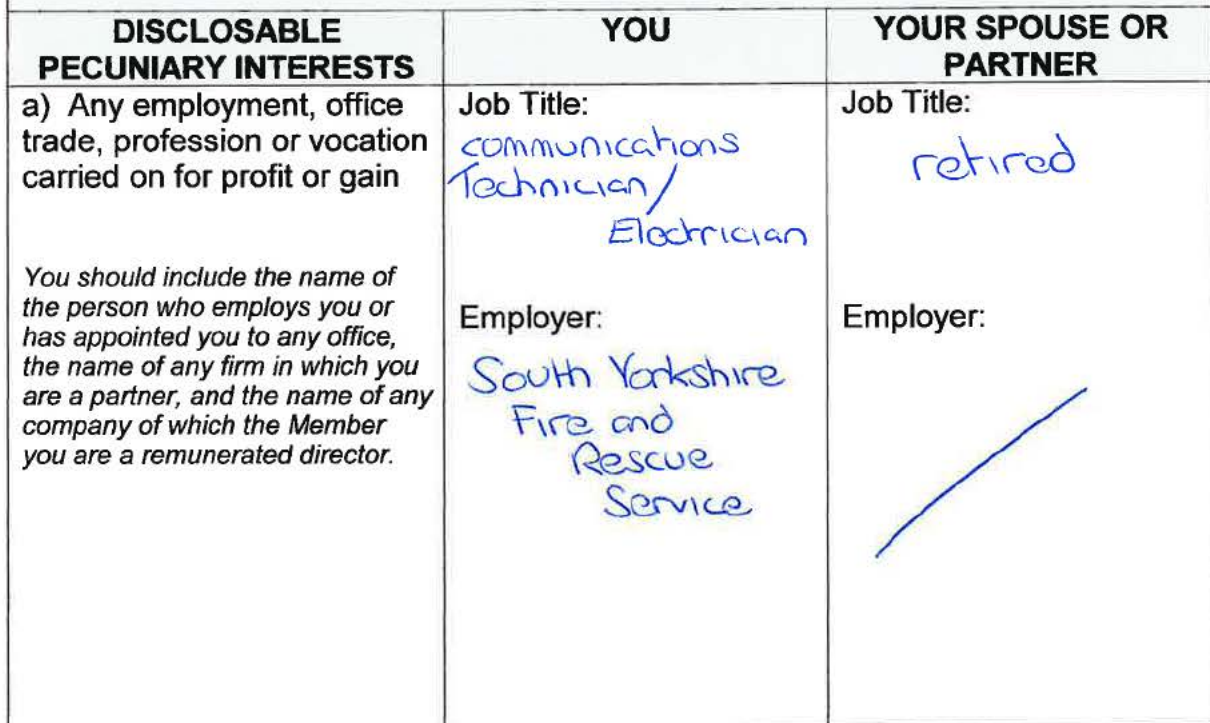 DISCLOSABLE
PECUNIARY INTERESTS
YOU
YOUR SPOUSE OR
PARTNER
a) Any employment, office
trade, profession or vocation
carried on for profit or gain
You should include the name of
the person who employs you or
has appointed you to any office,
the name of any firm in which you
are a partner, and the name of any
company of which the Member
you are a remunerated director.
Job Title:
communications
Technician/
Electrician
Employer:
South Yorkshire
Fire and
Rescue
Service
Job Title:
retired
Employer: